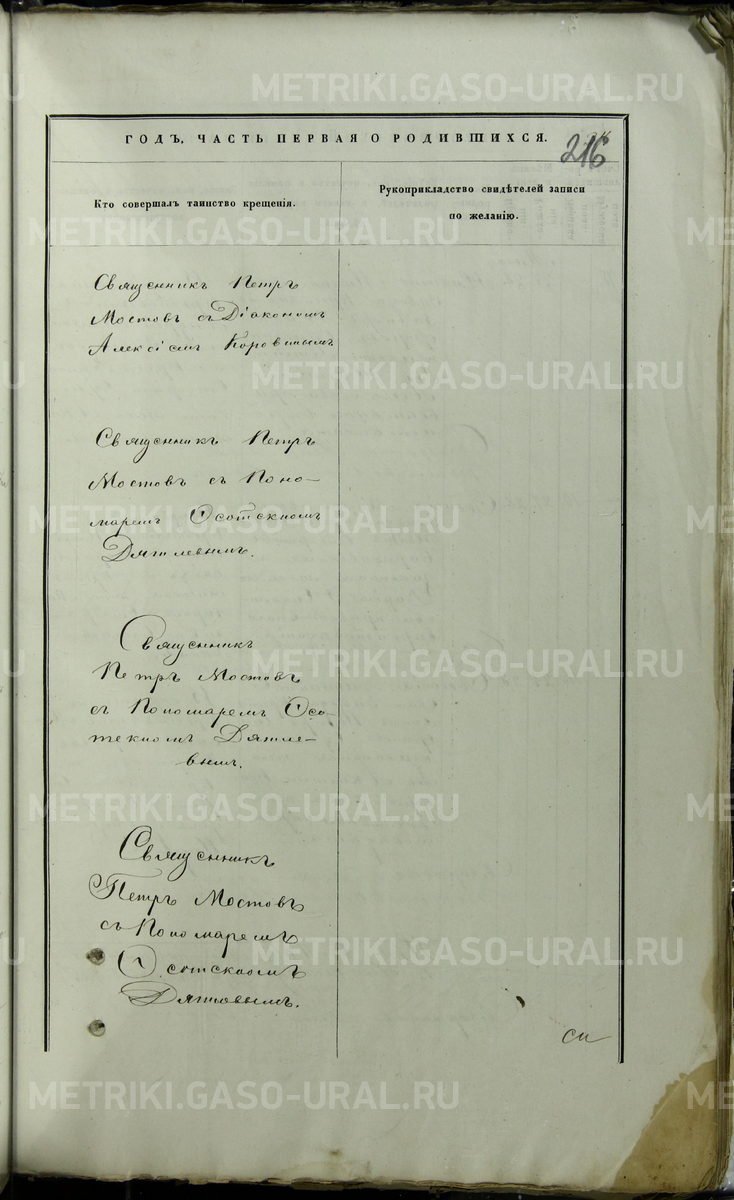 METRIKI.GASO-URAL.RU
ГОДЪ, ЧАСТЬ ПЕРВАЯ О РОДИВШИХСЯ.
216
Кто совершалъ таинство крещенія.
Рукоприкладство свидѣтелей записи
по желанію.
Священникъ Петръ
Мостовъ съ Діакономъ
Алексіемъ Коровинымъ
Священникъ Петръ
Мостовъ съ Поно-
маремъ
Дягилевымъ.
Священникъ
Петръ Мостовъ
съ Пономаремъ
Дягиле-
вымъ.
Священникъ
Петръ Мостовъ
съ Пономаремъ